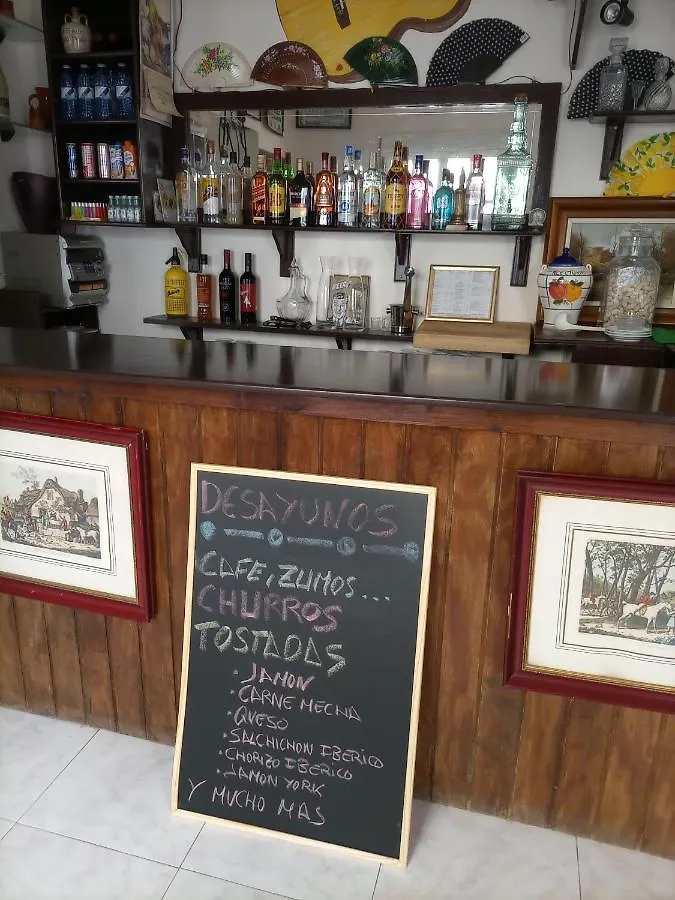 DESAYUNOS
CAFE, ZUMOS...
CHURROS
TOSTADAS
• JAMON
• CARNE MECHA
• QUESO
• SALCHICHON IBERICO
• CHORIZO IBERICO
• JAMON YORK
Y MUCHO MAS